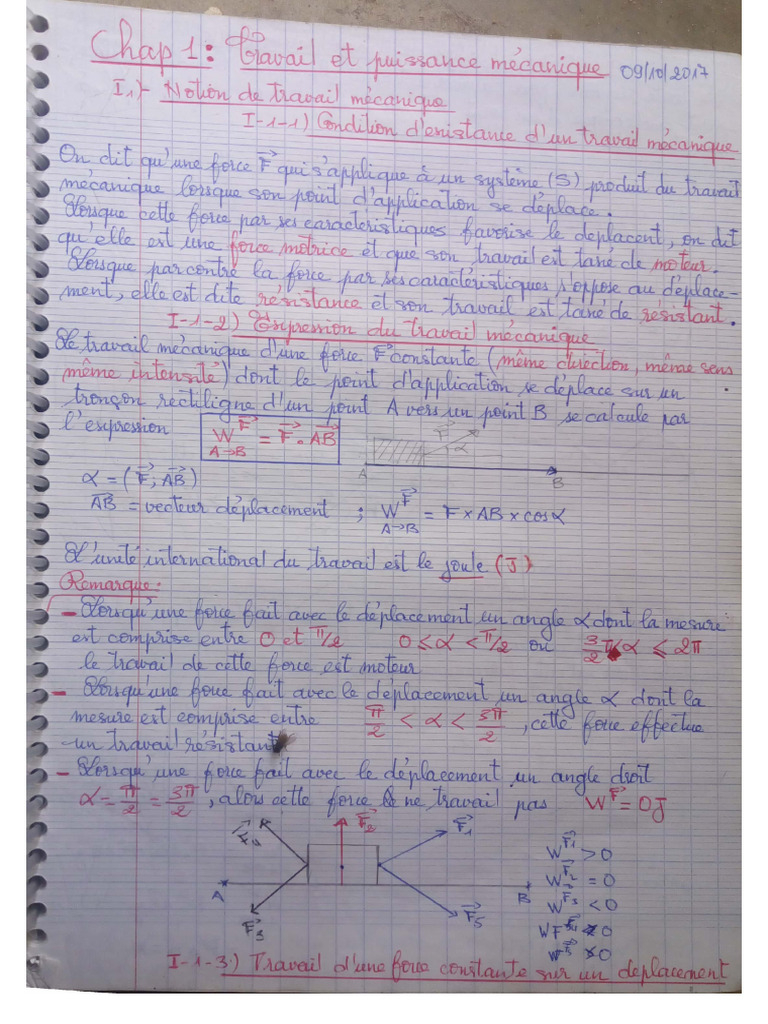 Chap 1: Travail et puissance mécanique 09/10/2017
I1)- Notion de travail mécanique
I-1-1) Condition d'enistance d'un travail mécanique
On dit qu'une force F⃗ qui s'applique à un système (S) produit du travail
mécanique lorsque son point d'application se déplace.
Lorsque cette force par ses caractéristiques favorise le deplacent, on dit
qu'elle est une force motrice et que son travail est tané de moteur.
Lorsque par contre la force par ses caractéristiques s'oppose au déplace-
ment, elle est dite résistance et son travail est tané de résistant.
I-1-2) Expression du travail mécanique
Le travail mécanique d'une force F⃗ constante (même direction, même sens
même intensité) dont le point d'application se déplace sur un
tronçon rectiligne d'un point A vers un point B se calcule par
l'expression W F⃗ A→B = F⃗ . AB⃗
F⃗ α
A B
α = (F⃗ ; AB⃗)
AB⃗ = vecteur déplacement ; W F⃗ A→B = F × AB × cosα
L'unité international du travail est le joule (J)
Remarque:
- Lorsqu'une force fait avec le déplacement un angle α dont la mesure
est comprise entre 0 et π/2 0 ≤ α < π/2 ou 3/2 π < α ≤ 2π
le travail de cette force est moteur
- Lorsqu'une force fait avec le déplacement un angle α dont la
mesure est comprise entre π/2 < α < 3π/2, cette force effectue
un travail résistant
- Lorsqu'une force fait avec le déplacement un angle droit
α = π/2 = 3π/2, alors cette force ne travail pas W F⃗ = 0J
F⃗2 F⃗1
W F⃗1 > 0
W F⃗2 = 0
A B
W F⃗3 < 0
F⃗3 F⃗5
I-1-3) Travail d'une force constante sur un deplacement